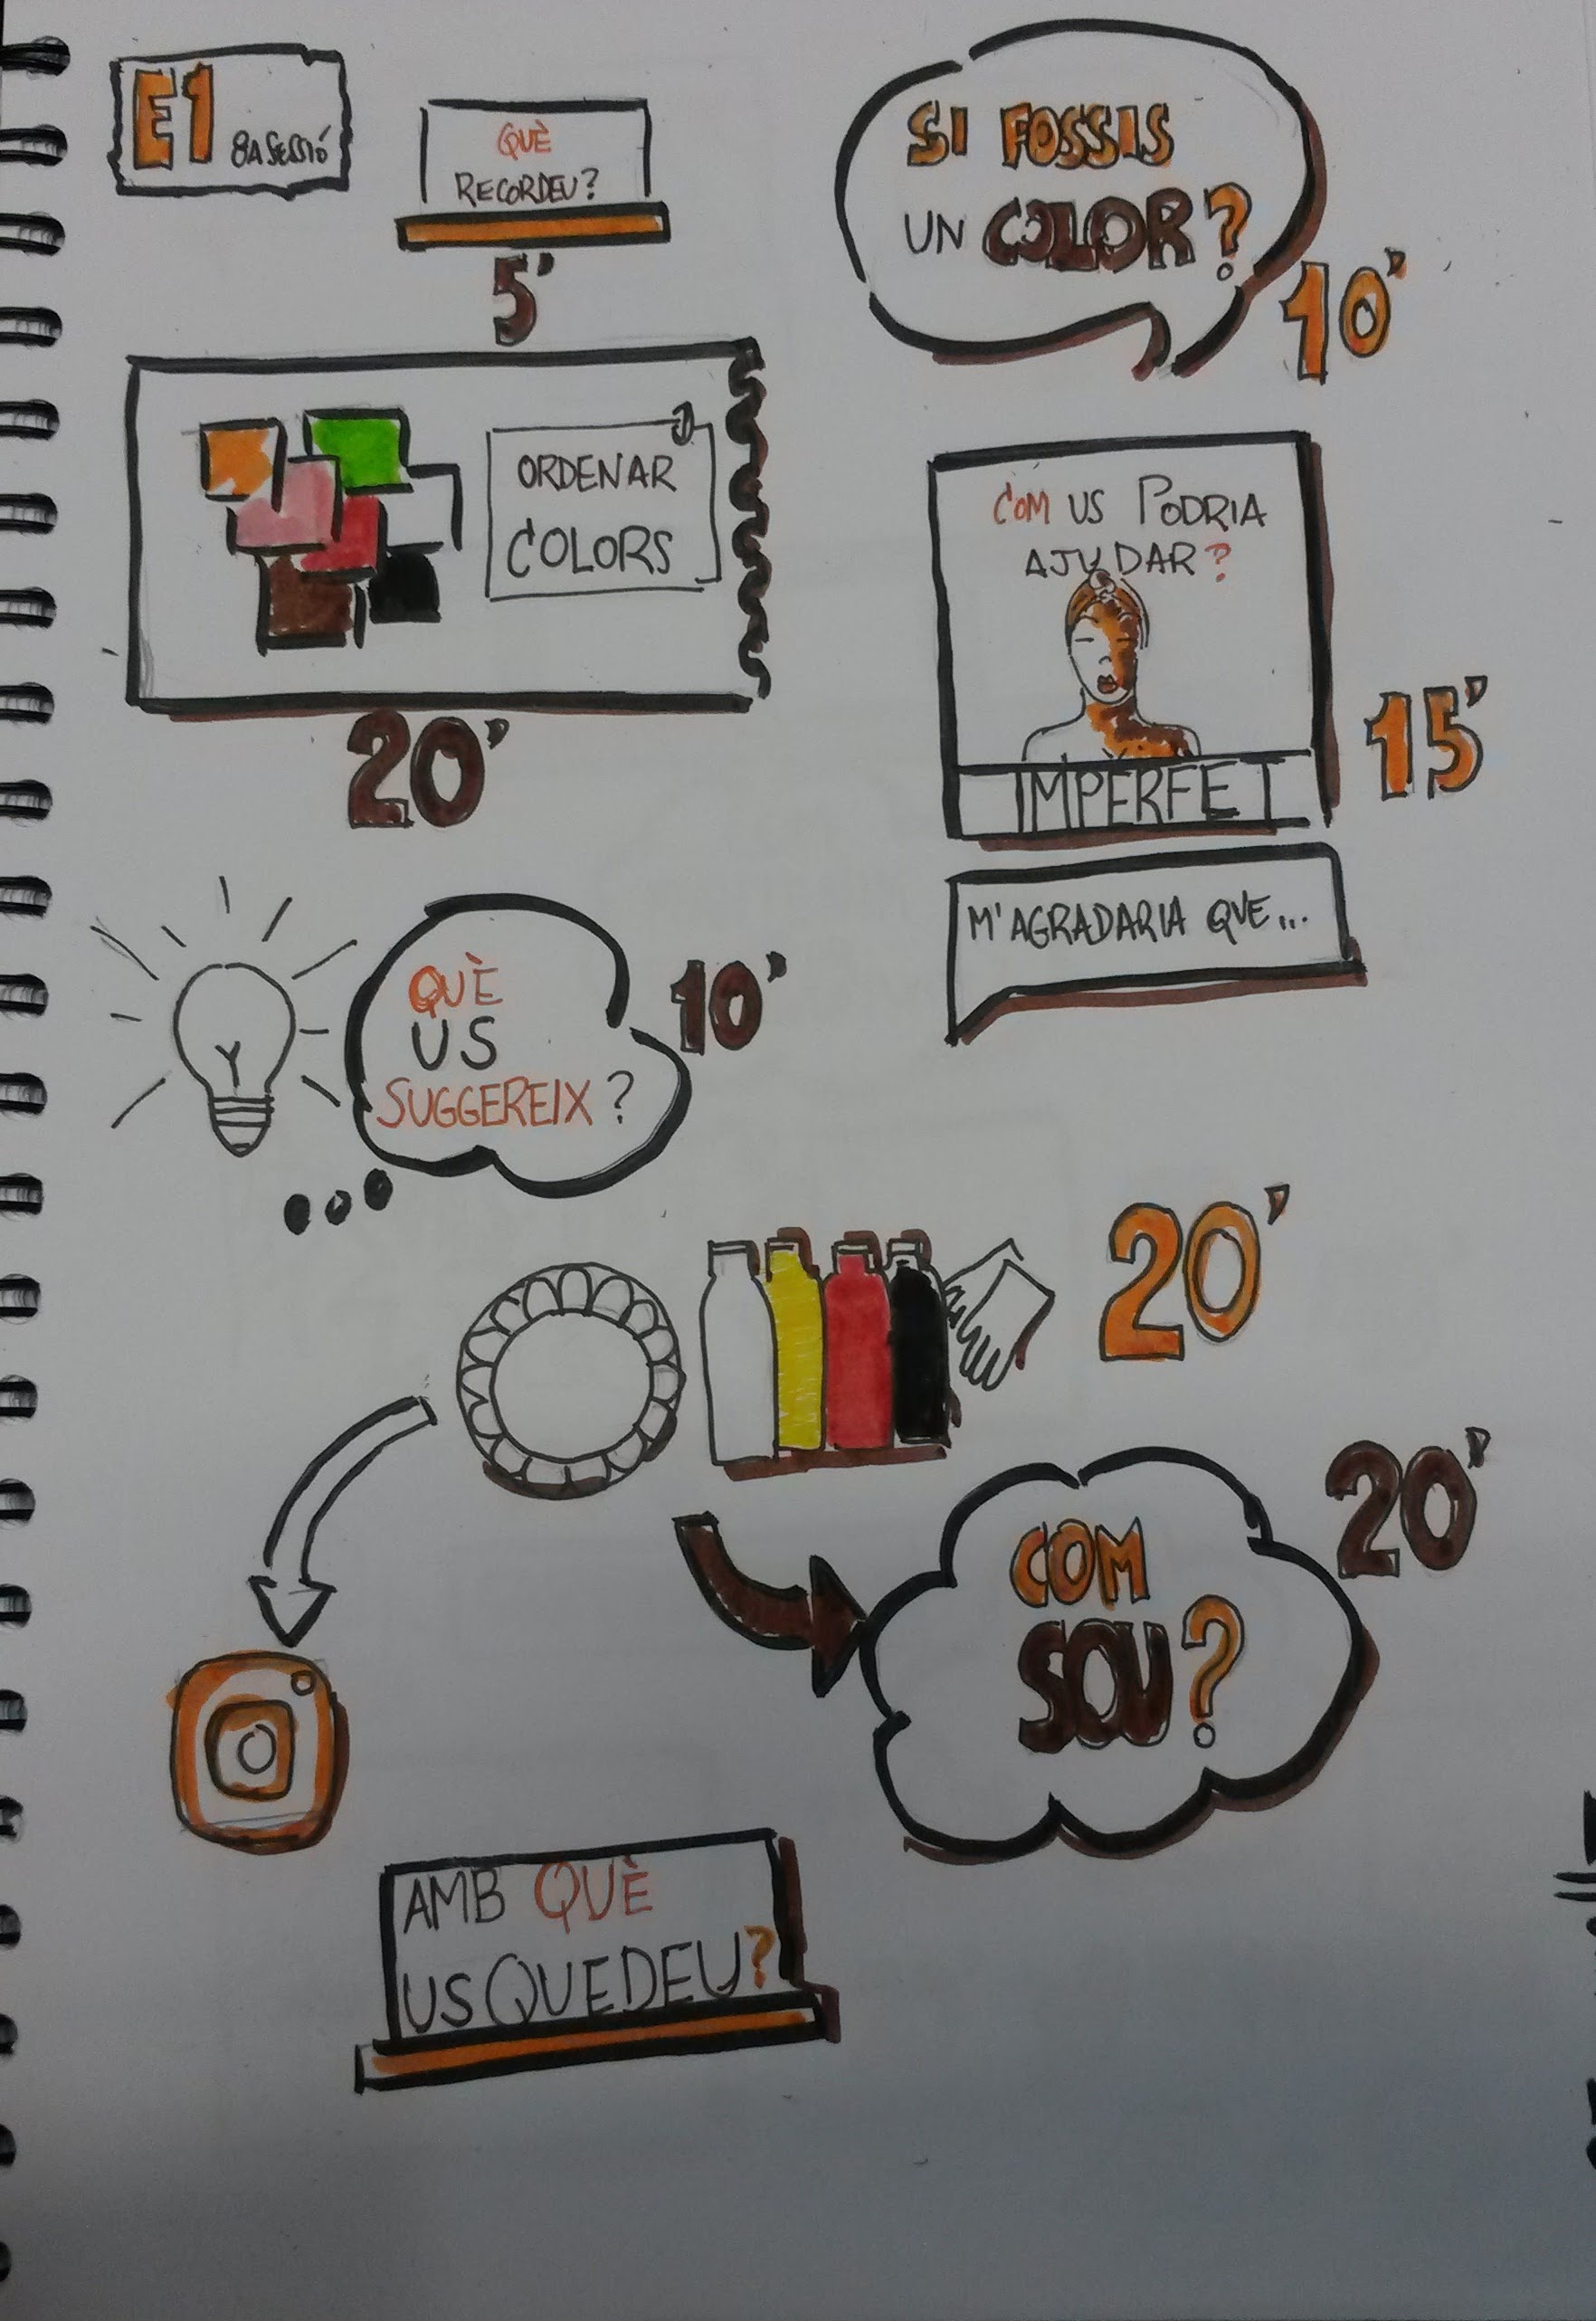 E1 8A SESSIÓ
QUÈ
RECORDEU?
5'
SI FOSSIS
UN COLOR?
10'
ORDENAR
COLORS
20'
COM US PODRIA
AJUDAR?
IMPERFET
15'
M'AGRADARIA QUE...
QUÈ
US
SUGGEREIX?
10'
20'
COM
SOU?
20'
AMB QUÈ
US QUEDEU?